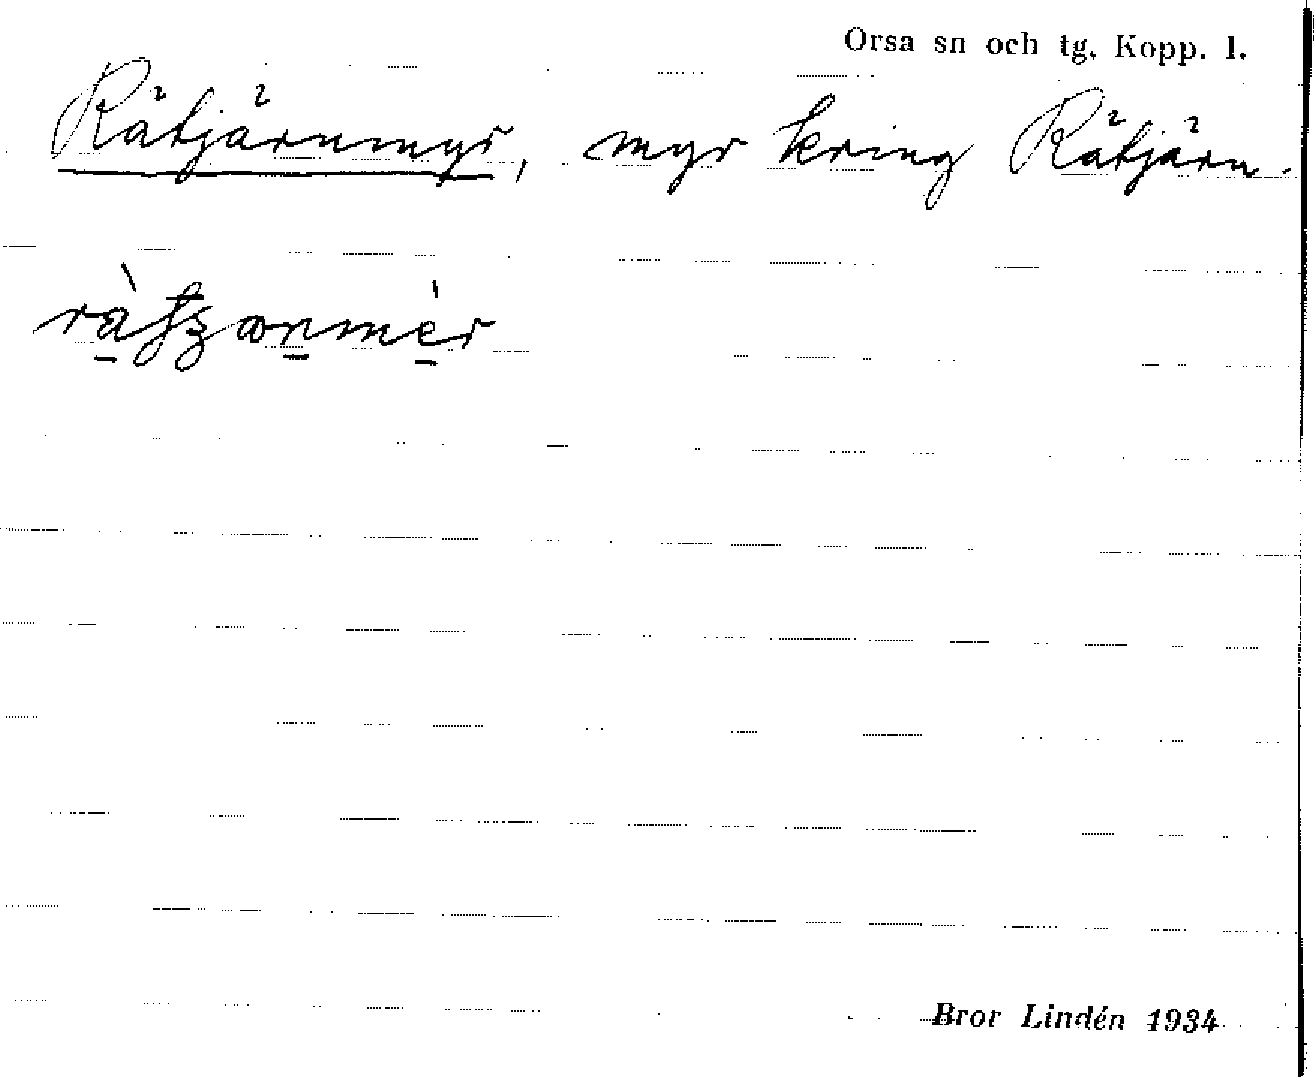 Orsa sn och tg. Kopp. l.
Rätjärnmyr, myr kring Rätjärn.
Bror Lindén 1934